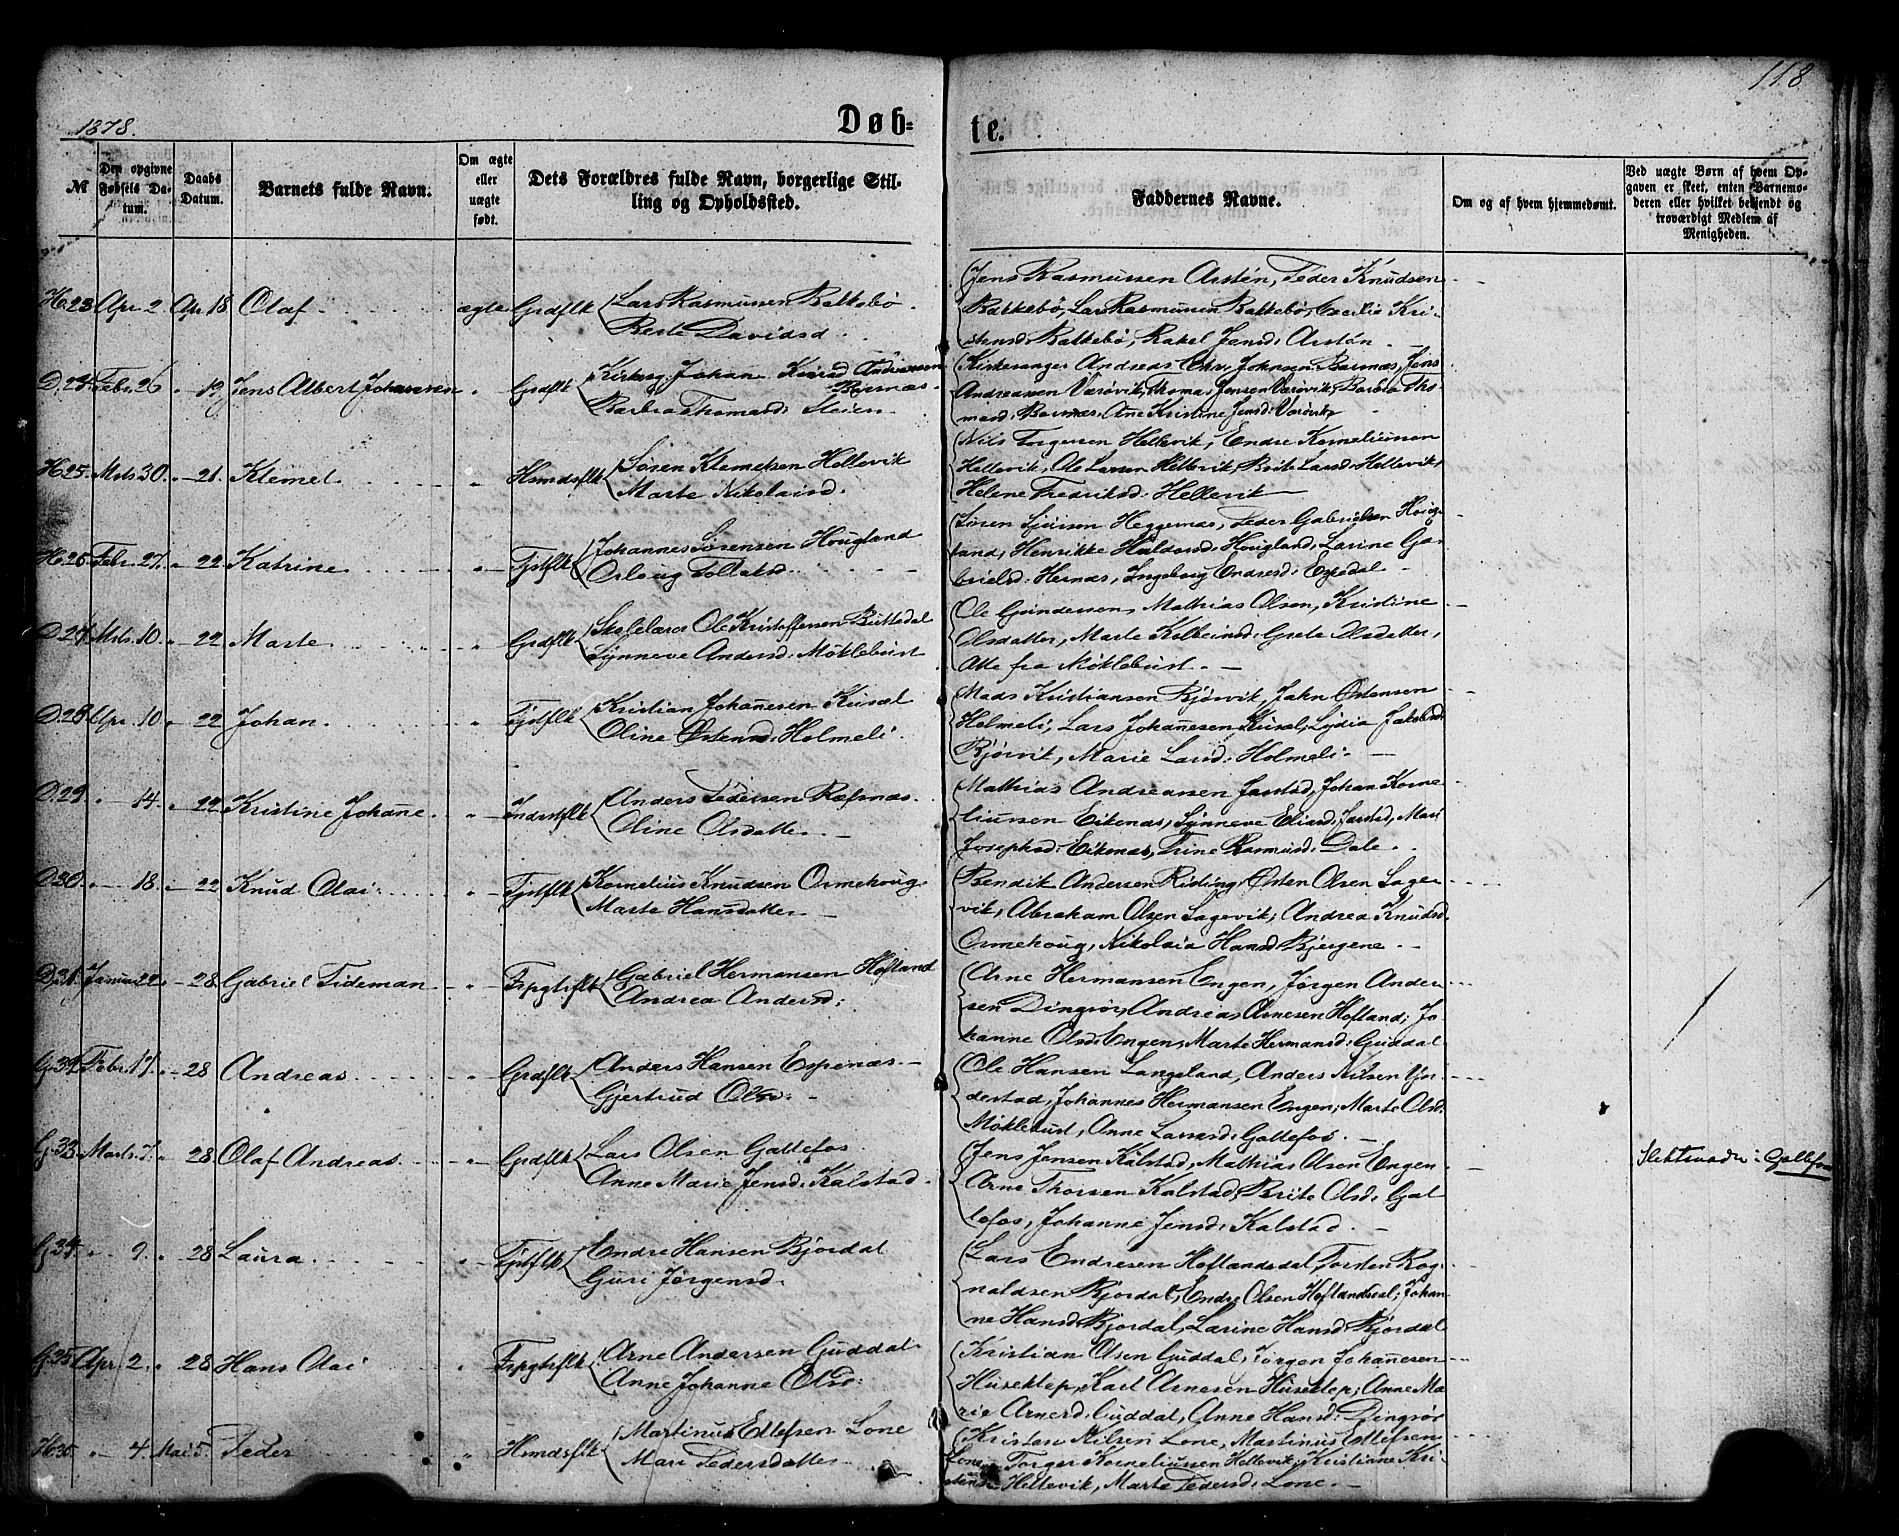 118
1878.
Døb-
te.
№
Den opgivne Fødsels Datum.
Daabs Datum.
Barnets fulde Navn.
Om ægte eller uægte født.
Dets Forældres fulde Navn, borgerlige Stilling og Opholdssted.
Faddernes Navne.
Om og af hvem hjemmedømt.
Ved uægte Børn af hvem Opgaven er skeet, enten Barnemoderen eller hvilket bekjendt og troværdigt Medlem af Menigheden.
H. 23 Apr. 2 Apr. 18 Olaf ægte Grdflk Lars Rasmussen Bakkebø
Berte Davidsd.
Jens Rasmussen Peder Knudsen
Bakkebø, Lars Rasmussen Bakkebø, Cecilie Kri-
stensd: Bakkebø, Rakel Jensd:
D. 24 Febr. 26 " 19 Jens Albert Johannesen " Grdflk Kirkesg. Johan Andreassen
Barsnæs
Barbra Thomasd: Steien
Kirkesanger Andreas Chr. Johnsen Barsnæs, Jens
Andreassen Værøvik, Thomas Jensen Værøvik, Barbra Tho-
masd: Barsnæs, Ane Kristine Jensd: Værøvik
H 25. Mrts 30. " 21. Klemet " Hsmdsflk Søren Klemetsen Hellevik
Marte Nikolaisd.
Nils Torgersen Hellevik, Endre Korneliussen
Hellevik, Ole Larsen Hellevik, Brite Larsd: Hellevik,
Helene Fredriksd: Hellevik
H. 26 Febr. 27. " 22 Katrine " Tjstflk Johannes Sørensen Hougland
Oslaug Tollaksd.
Søren Sjursen Heggenæs, Peder Gabrielsen Houg-
land, Henrikke Haldorsd: Hougland, Larine Ga-
brielsd: Hernæs, Ingeborg Endresd: Espedal
D. 27 Mrts. 10. " 22 Marte " Grdflk Skolelærer Ole Kristoffersen
Synneve Andersd: Møklebust
Ole Gundersen, Mathias Olsen, Kristine
Olsdatter, Marte Kolbeinsd: Grete Olsdatter,
Alle fra Møklebust.
D. 28 Apr. 10. " 22 Johan. " Tjstflk Kristian Johanesen
Oline Østensd: Holmeli.
Mads Kristiansen Bjørvik, Jahn Østensen
Holmeli, Lars Johanesen Lydia Jakobsd:
Bjørvik, Marie Larsd: Holmeli.
D. 29 " 14. " 22 Kristine Johane. " Indrstflk Anders Pedersen Refsnæs.
Oline Olsdatter.
Mathias Andreassen Jarstad, Johan Korne-
liussen Eikenæs, Synneve Eliasd: Jarstad, Mari
Josephsd: Eikenæs, Trine Rasmusd: Dale.
D. 30 " 18. " 22 Knud Olai " Tjstflk Kornelius Knudsen Ormehoug
Marte Hansdatter
Bendik Andersen Risting, Østen Olsen Sage-
vik, Abraham Olsen Sagevik, Andrea Knudsd
Ormehoug, Nikolaia Hansd: Bjergene
D. 31. Januar 22. " 28. Gabriel Tideman " Frpgtrflk Gabriel Hermansen Hofland
Andrea Andersd:
Arne Hermansen Engen, Jørgen Ander-
sen Dingsør, Andreas Arnesen Hofland; Jo-
hanne Olsd: Engen, Marte Hermansd: Guddal
G. 32 Febr. 17. " 28 Andreas. " Grdflk Anders Hansen Espenæs
Gjertrud Olsd:
Ole Hansen Langeland, Anders Nilsen Yn-
destad, Johannes Hermansen Engen; Marte Olsd:
Møklebust, Anne Larsd: Gallefos.
G. 33. Marts 7. " 28. Olaf Andreas. " Grdflk Lars Olsen Gallefos
Anne Marie Jensd: Kalstad.
Jens Jensen Kalstad, Mathias Olsen Engen
Arne Thorsen Kalstad, Brite Olsd: Gal-
lefos, Johanne Jensd: Kalstad.
Gallefos
G. 34. " 9. " 28 Laura. " Tjstflk Endre Hansen Bjordal
Guri Jørgensd.
Lars Endresen Hoflandsdal, Torsten Rog-
naldsen Bjordal, Endre Olsen Hoflandsdal; Johan-
ne Hansd: Bjordal, Larine Hansd: Bjordal
G. 35 Apr. 2. " 28 Hans Olai " Frpgtrflk Arne Andersen Guddal
Anne Johanne Olsd:
Kristian Olsen Guddal, Jørgen Johanesen
Huseklep, Karl Arnesen Huseklep, Anne Ma-
rie Arnesd: Guddal, Anne Hansd: Dingsør
H. " 4 Mai 5. Peder " Hsmdsflk Martinus Ellefsen Lone
Mari Pedersdatter
Kristen Nilsen Lone, Martinus Ellefsen
Lone, Torger Korneliussen Hellevik, Kristiane Kri-
stensd: Hellevik, Marte Pedersd: Lone.